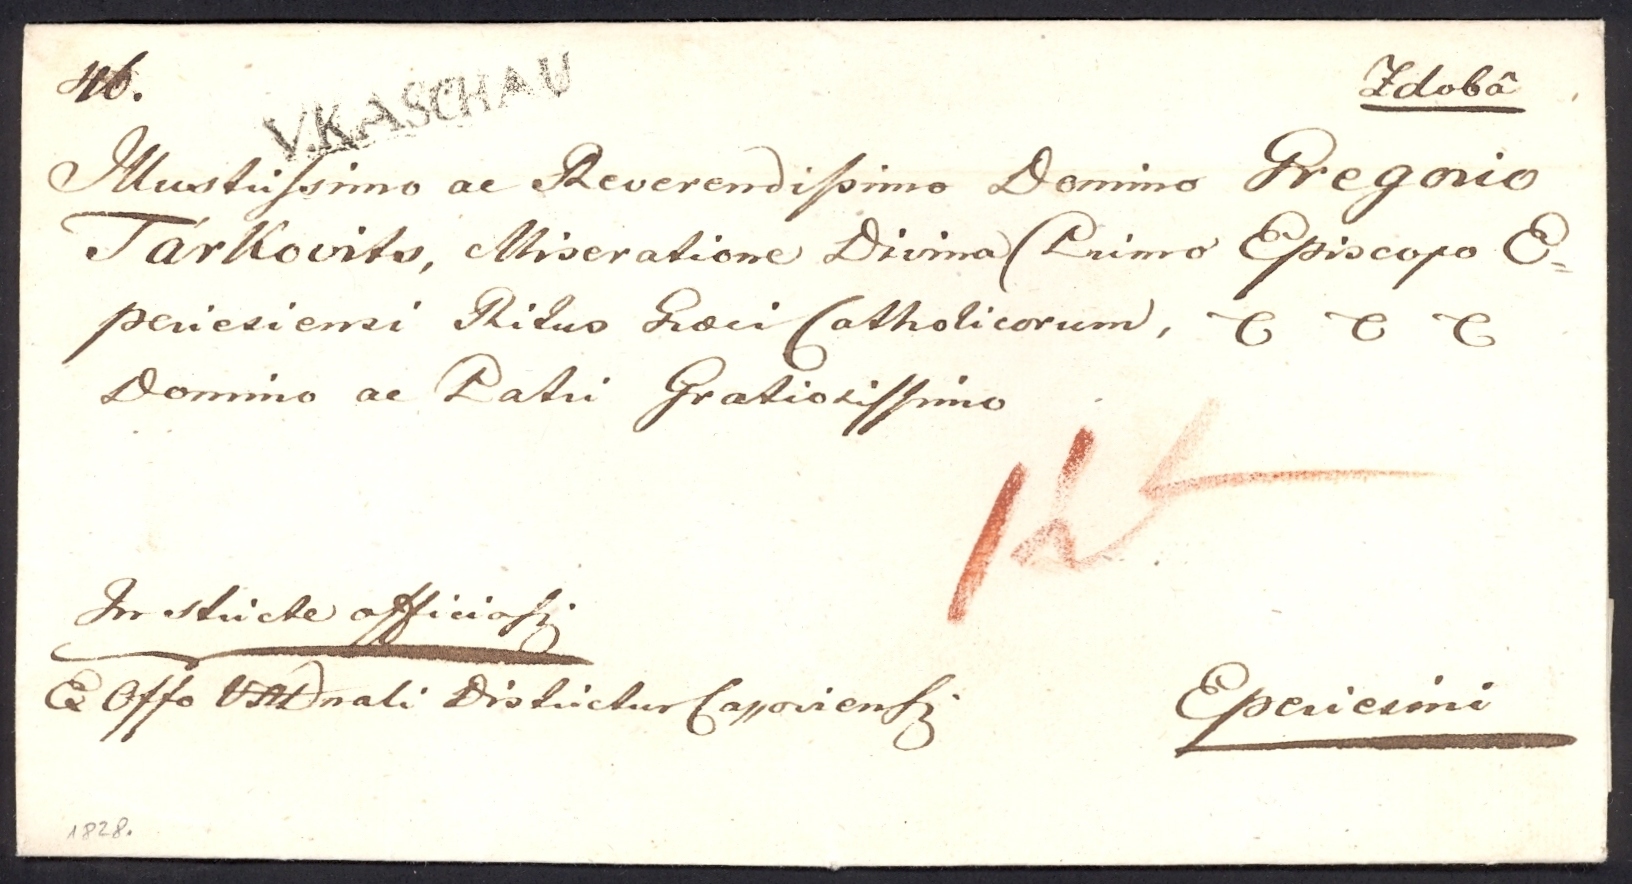 46.
V. KASCHAU
Zdobâ
Illustrissimo ac Reverendissimo Domino Gregorio
Tárkovits, Miseratione Divina Primo Episcopo E=
periesiensi Ritus Græci Catholicorum,
Domino ac Patri Gratiosissimo
In stricte officiosis
Ex Offo Districtus Cassoviensis
Eperiesini
1828.